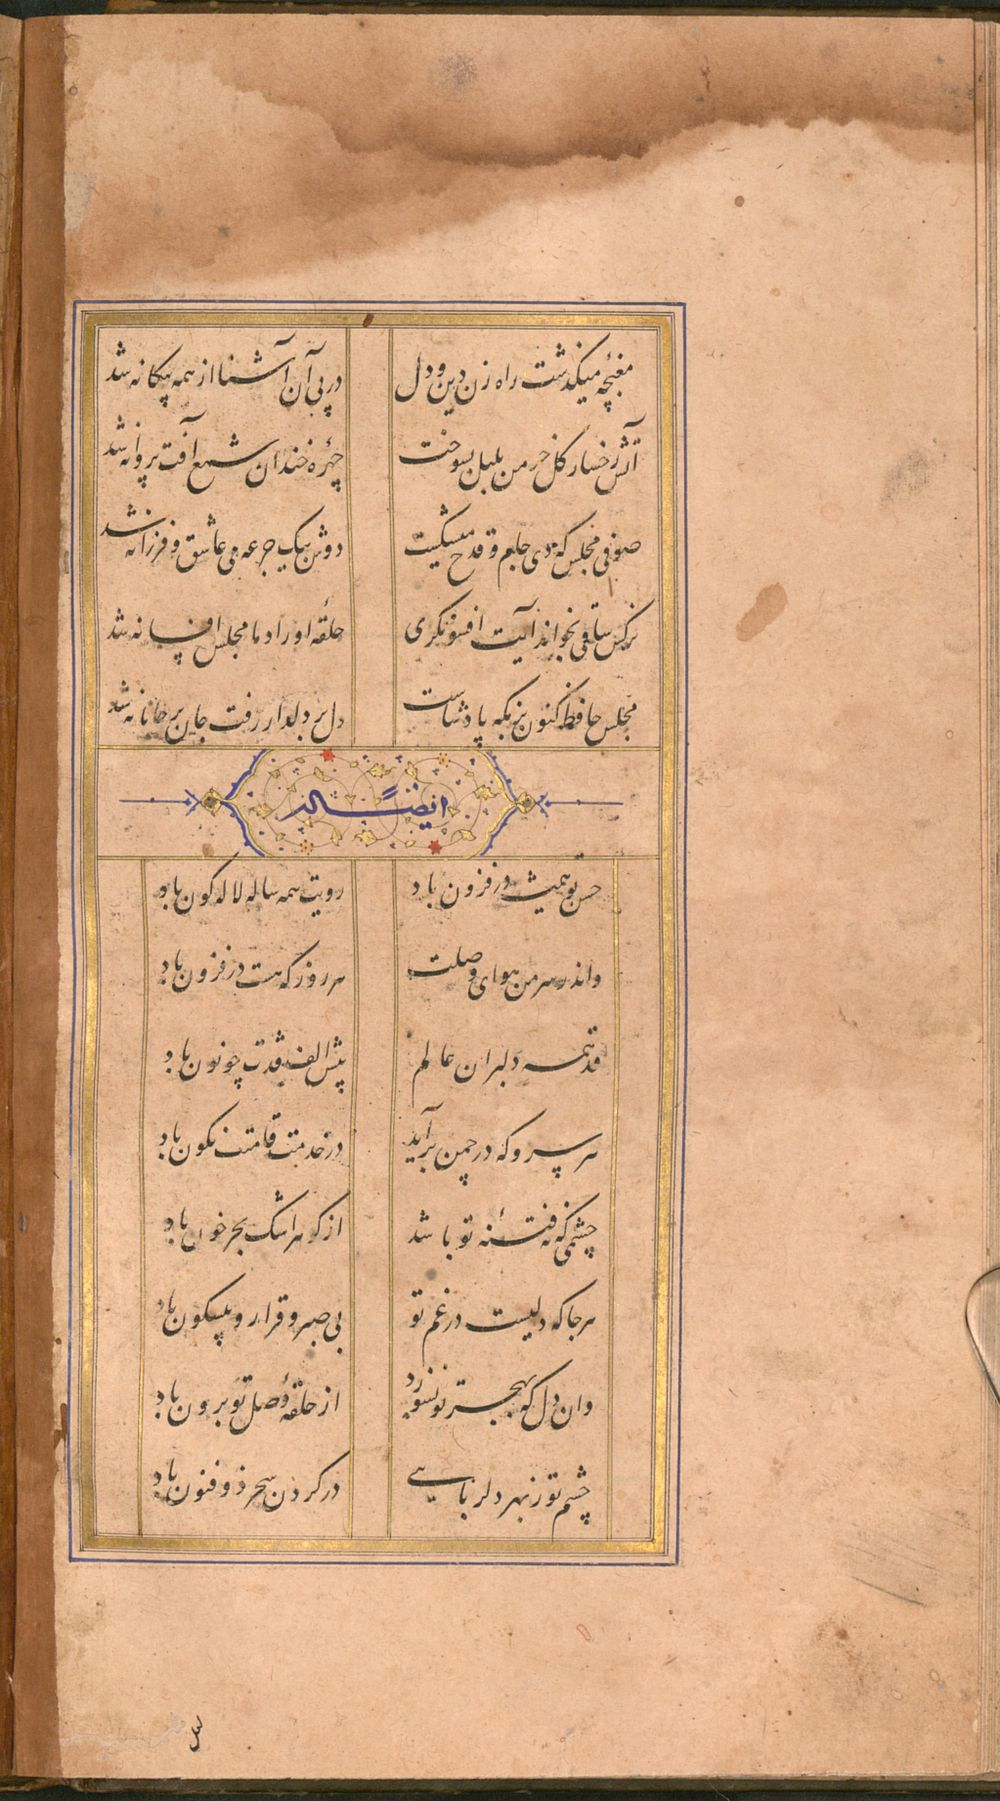 مغبچه میگذشت راه زن دین و دل در پی آن آشنا از همه بیگانه شد
آتش رخسار گل خرمن بلبل بسوخت چهرهٔ خندان شمع آفت پروانه شد
صوفی مجلس که دی جام و قدح میشکست دوش بیک جرعه می عاشق و فرزانه شد
نرکس ساقی بخواند آیت افسونکری حلقهٔ اوراد ما مجلس افسانه شد
مجلس حافظ کنون بزمکه پادشاست دل بر دلدار رفت جان بر جانانه شد
ایضاً له
حسن تو همیشه در فزون باد رویت همه ساله لاله کون باد
واندر سر من هوای وصلت هر روز که هست در فزون باد
قد همه دلبران عالم پیش الف قدت چو نون باد
هر سرو که در چمن برآید در خدمت قامتت نکون باد
چشمی که نه فتنهٔ تو باشد از کوهر اشک بحر خون باد
هر جا که دلیست در غم تو بی صبر و قرار و بیسکون باد
وان دل که بهجر تو نسوزد از حلقهٔ وصل تو برون باد
چشم تو ز بهر دلربایی در کردن سحر ذوفنون باد
لعل